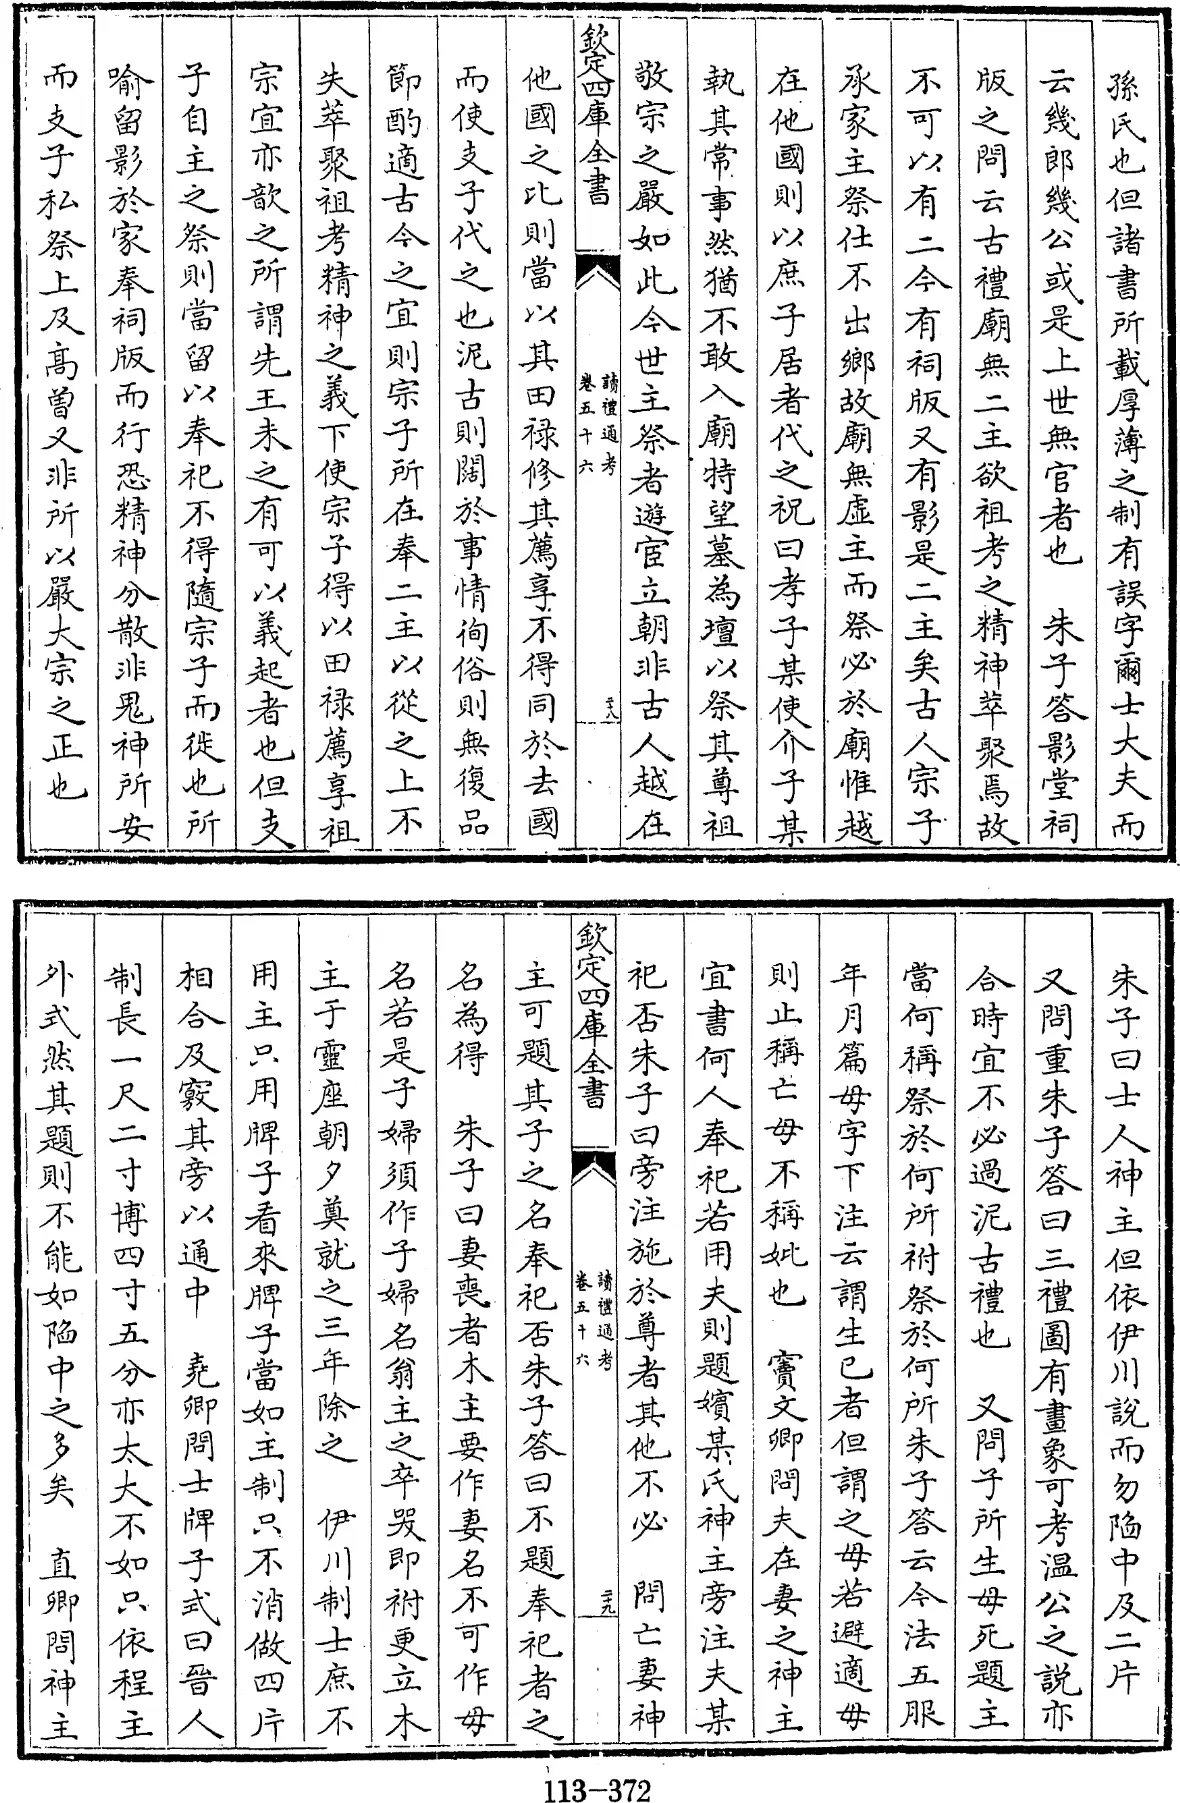 孫氏也但諸書所載厚薄之制有誤字爾士大夫而
云幾郎幾公或是上世無官者也　朱子答影堂祠
版之問云古禮廟無二主欲祖考之精神萃聚焉故
不可以有二今有祠版又有影是二主矣古人宗子
承家主祭仕不出鄉故廟無虛主而祭必於廟惟越
在他國則以庶子居者代之祝曰孝子某使介子某
執其常事然猶不敢入廟特望墓為壇以祭其尊祖
敬宗之嚴如此今世主祭者遊宦立朝非古人越在
欽定四庫全書
讀禮通考
卷五十六
三十八
他國之比則當以其田禄修其薦享不得同於去國
而使支子代之也泥古則闊於事情徇俗則無復品
節酌適古今之宜則宗子所在奉二主以從之上不
失萃聚祖考精神之義下使宗子得以田禄薦享祖
宗宜亦歆之所謂先王未之有可以義起者也但支
子自主之祭則當留以奉祀不得隨宗子而徙也所
喻留影於家奉祠版而行恐精神分散非鬼神所安
而支子私祭上及高曾又非所以嚴大宗之正也
朱子曰士人神主但依伊川說而勿陷中及二片
又問重朱子答曰三禮圖有畫象可考温公之說亦
合時宜不必過泥古禮也　又問子所生母死題主
當何稱祭於何所祔祭於何所朱子答云今法五服
年月篇母字下注云謂生已者但謂之母若避適母
則止稱亡母不稱妣也　竇文卿問夫在妻之神主
宜書何人奉祀若用夫則題嬪某氏神主旁注夫某
祀否朱子曰旁注施於尊者其他不必　問亡妻神
欽定四庫全書
讀禮通考
卷五十六
三十九
主可題其子之名奉祀否朱子答曰不題奉祀者之
名為得　朱子曰妻喪者木主要作妻名不可作母
名若是子婦須作子婦名翁主之卒哭即祔更立木
主于靈座朝夕奠就之三年除之　伊川制士庶不
用主只用牌子看來牌子當如主制只不消做四片
相合及竅其旁以通中　堯卿問士牌子式曰晉人
制長一尺二寸博四寸五分亦太大不如只依程主
外式然其題則不能如陷中之多矣　直卿問神主
113-372